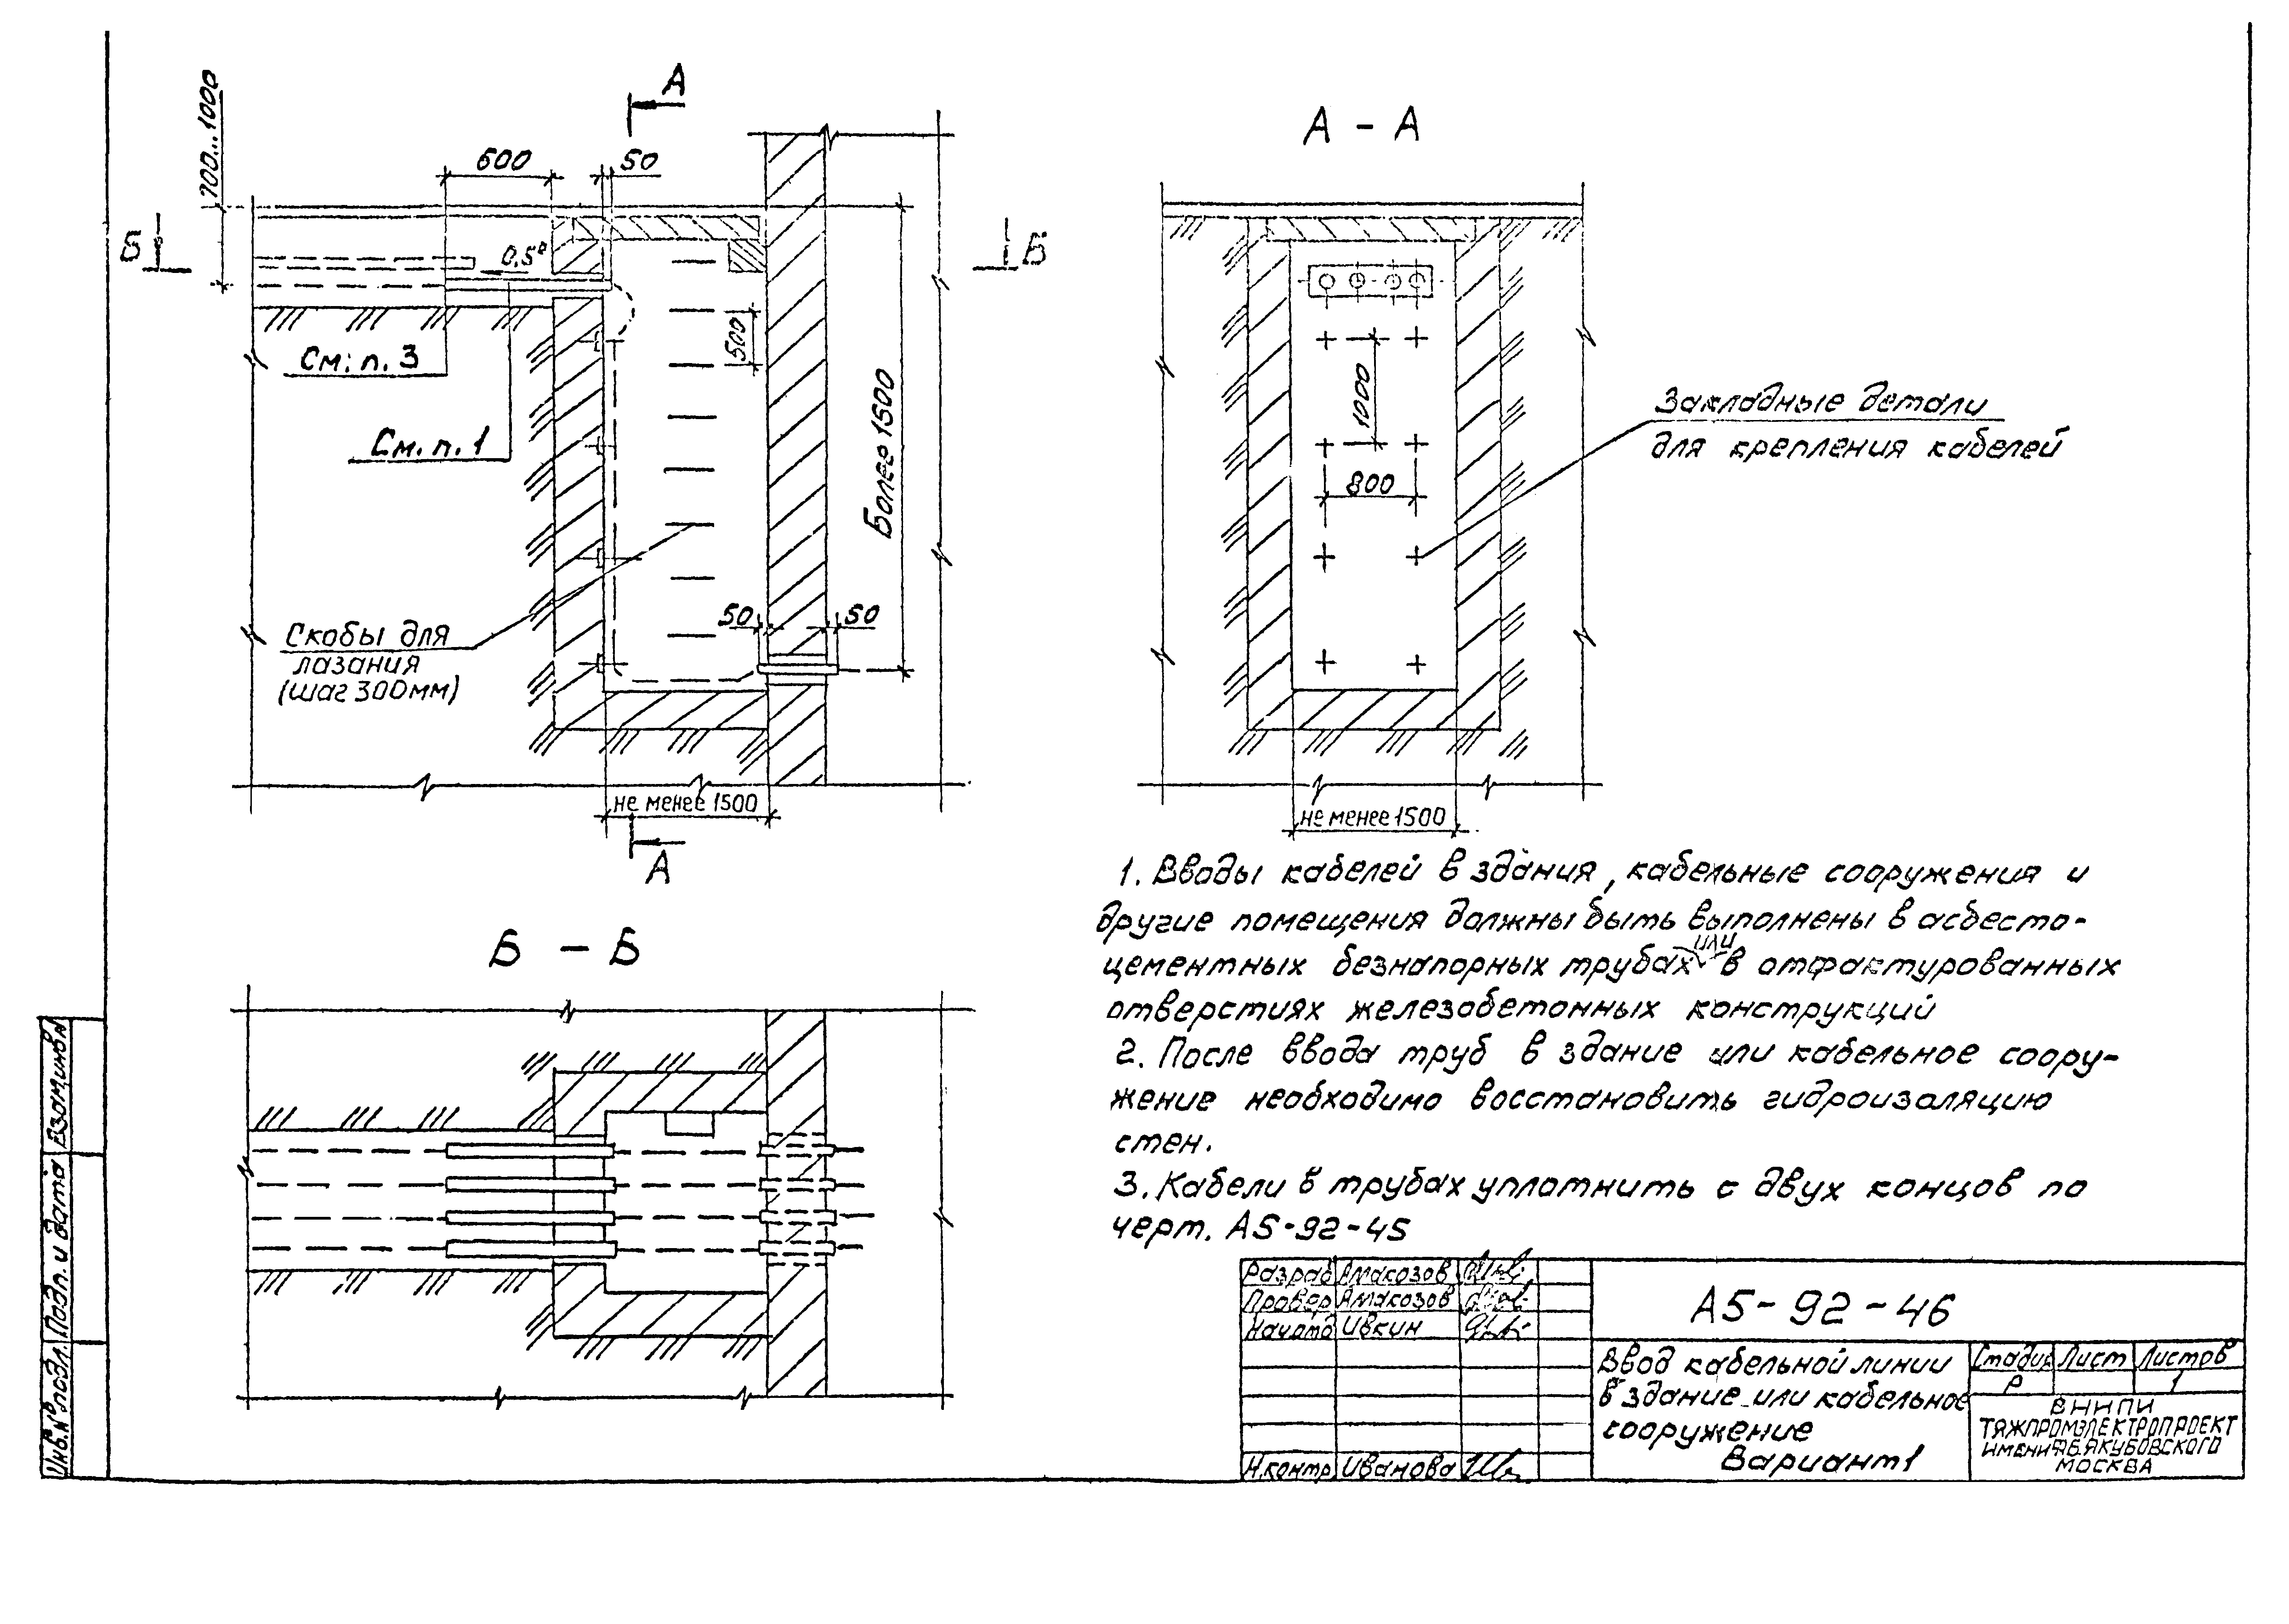 А
А - А
700...1000
600
50
Б
Б
0,5°
500
См. п. 3
См. п. 1
Более 1500
1000
800
Закладные детали
для крепления кабелей
50
50
Скобы для
лазания
(шаг 300мм)
не менее 1500
не менее 1500
А
Б - Б
1. Вводы кабелей в здания, кабельные сооружения и
другие помещения должны быть выполнены в асбесто-
цементных безнапорных трубах или в отфактурованных
отверстиях железобетонных конструкций
2. После ввода труб в здание или кабельное соору-
жение необходимо восстановить гидроизоляцию
стен.
3. Кабели в трубах уплотнить с двух концов по
черт. А5-92-45
Взам.инв.№
Подп. и дата
Инв.№ подл.
Разраб Амакозов
Провер Амакозов
Нач.отд Ивкин
Н.контр. Иванова
А5-92-46
Ввод кабельной линии
в здание или кабельное
сооружение
Вариант 1
Стадия Лист Листов
Р 1
ВНИПИ
ТЯЖПРОМЭЛЕКТРОПРОЕКТ
ИМЕНИ Ф.Б.ЯКУБОВСКОГО
МОСКВА